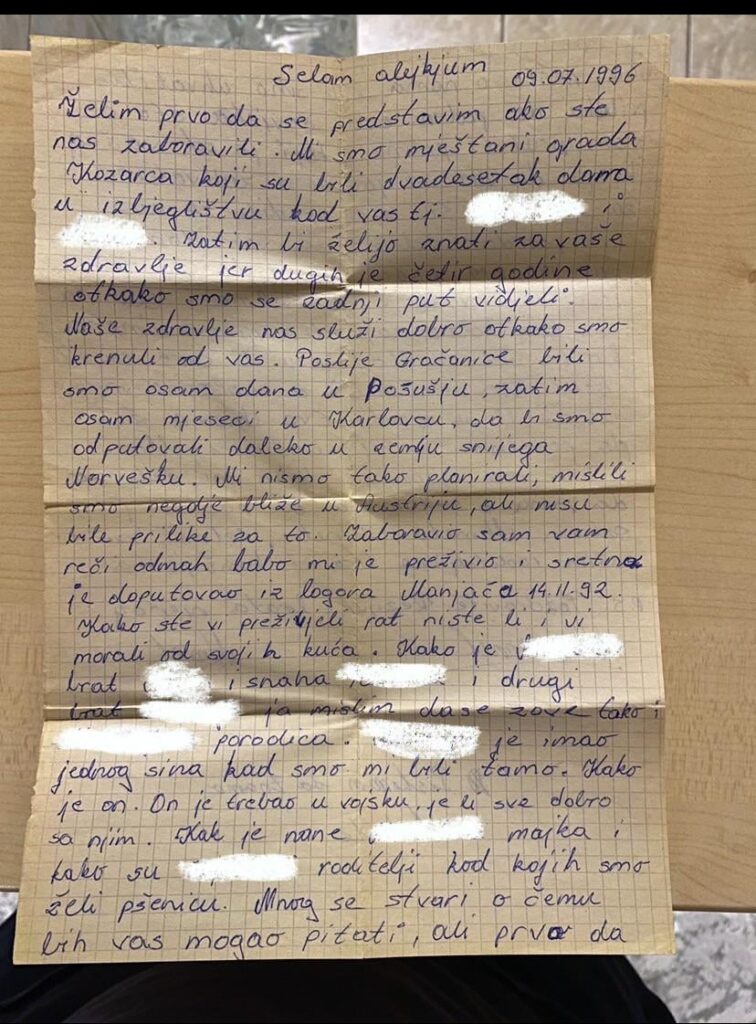 Selam alejkjum 09.07.1996
Želim prvo da se predstavim ako ste
nas zaboravili. Mi smo mještani grada
Kozarca koji su bili dvadesetak dana
u izbjeglištvu kod vas tj. i
. Zatim bi želijo znati za vaše
zdravlje jer dugih je četir godine
otkako smo se zadnji put vidjeli.
Naše zdravlje nas služi dobro otkako smo
krenuli od vas. Poslije Gračanice bili
smo osam dana u Posušju, zatim
osam mjeseci u Karlovcu, da bi smo
odputovali daleko u zemlju snijega
Norvešku. Mi nismo tako planirali, mislili
smo negdje bliže u Austriju, ali nisu
bile prilike za to. Zaboravio sam vam
reči odmah babo mi je preživio i sretno
je doputovao iz logora Manjača 14.11.92.
Kako ste vi preživjeli rat niste li i vi
morali od svojih kuća. Kako je
brat i snaha i drugi
brat ja mislim da se zove tako i
porodica. je imao
jednog sina kad smo mi bili tamo. Kako
je on. On je trebao u vojsku, je li sve dobro
sa njim. Kak je nane majka i
kako su roditelji kod kojih smo
želi pšenicu. Mnog se stvari o čemu
bih vas mogao pitati, ali prvo da